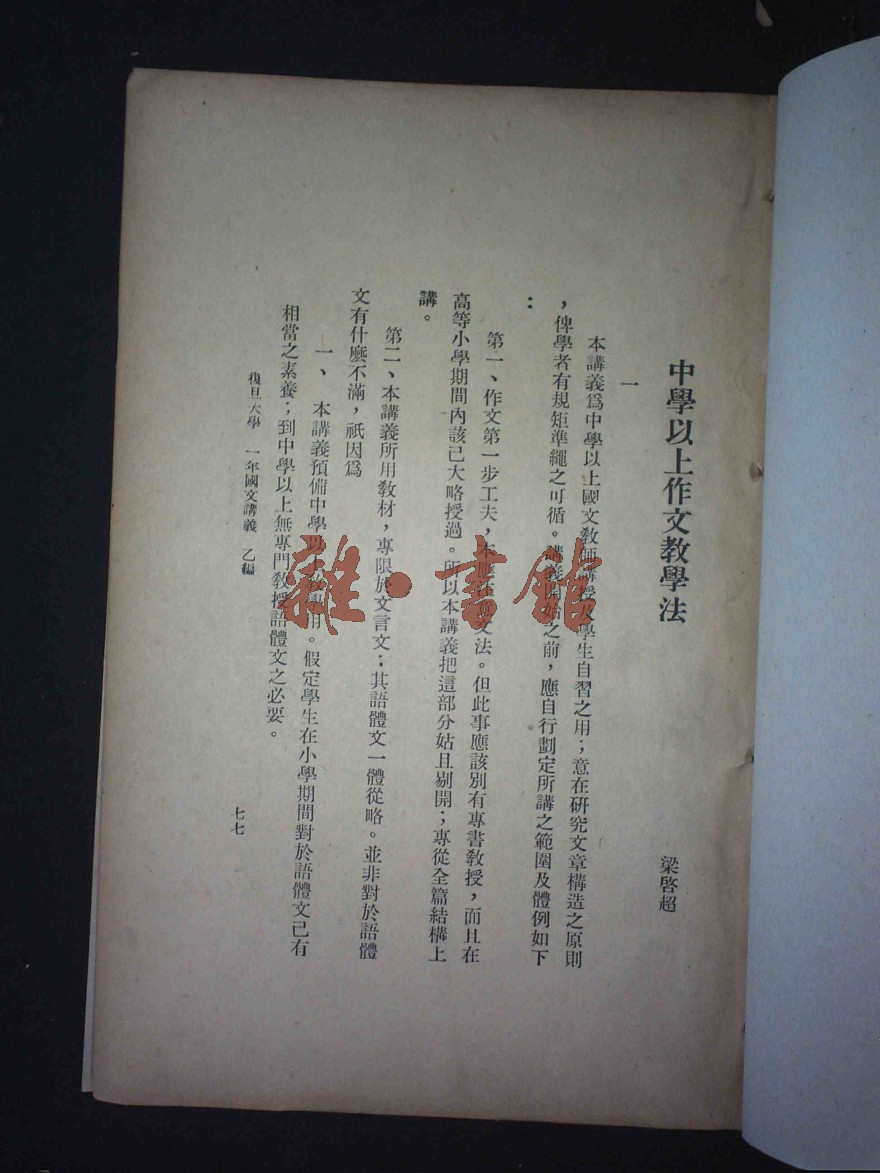 中學以上作文教學法
梁啓超
一
本講義爲中學以上國文教師講授及學生自習之用；意在研究文章構造之原則
，俾學者有規矩準繩之可循。講義開始之前，應自行劃定所講之範圍及體例如下
：
第一、作文第一步工夫，本應注意文法。但此事應該別有專書教授，而且在
高等小學期間內該已大略授過。所以本講義把這部分姑且剔開；專從全篇結構上
講。
第二、本講義所用教材，專限於文言文；其語體文一體從略。並非對於語體
文有什麽不滿，祇因爲
一、本講義預備中學以上教學用。假定學生在小學期間對於語體文已有
相當之素養；到中學以上無專門教授語體文之必要。
復旦大學 一年國文講義 乙編
七七
雜·書館